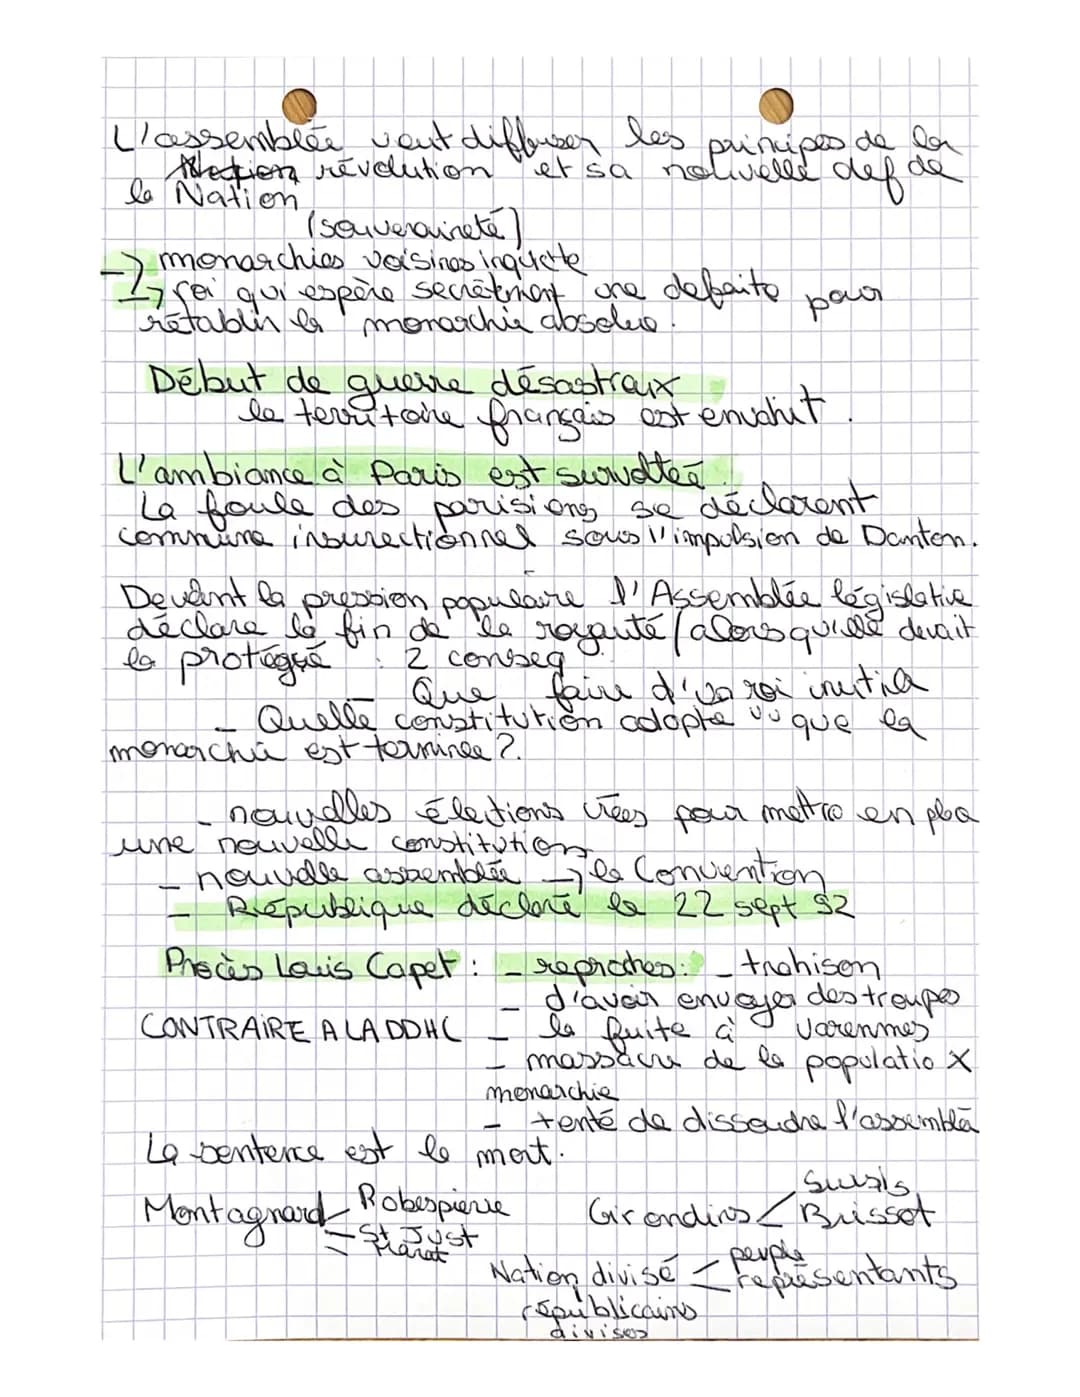 L'assemblée veut diffuser les principes de la
Nation révolution et sa nouvelle def de
la Nation
(souveraineté)
-> monarchies voisines inquiete
-> roi qui espère secrètment une defaite pour
rétablir la monarchie absolue.
Début de guerre désastreux
le territoire français est envahit.
L'ambiance à Paris est survoltée.
La foule des parisiens se déclarent
commune insurectionnel sous l'impulsion de Danton.
Devant la pression populaire l'Assemblée législative
déclare la fin de la royauté (alors qu'elle devait
la protégée : 2 conseq
- Que faire d'un roi inutile
- Quelle constitution adopte vu que la
monarchie est terminée ?.
- nouvelles élections crées pour mettre en place
une nouvelle constitution
- nouvelle assemblée -> la Convention
- République déclaré le 22 sept 92
Procès Louis Capet : - reproches : - trahison
- d'avoir envoyer des troupes
CONTRAIRE A LA DDHC - la fuite à Varennes
- massacre de la populatio X
monarchie
- tenté de dissoudre l'assemblée
La sentence est la mort.
Sursis
Montagnard - Robespierre Girondins < Brissot
- St Just
- Marat
peuple
Nation divisé < représentants
républicains
divisés